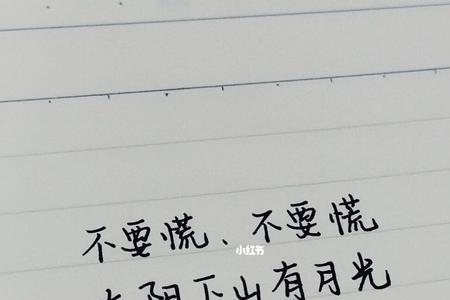 不要慌、不要慌
小红书
太阳下山有月光